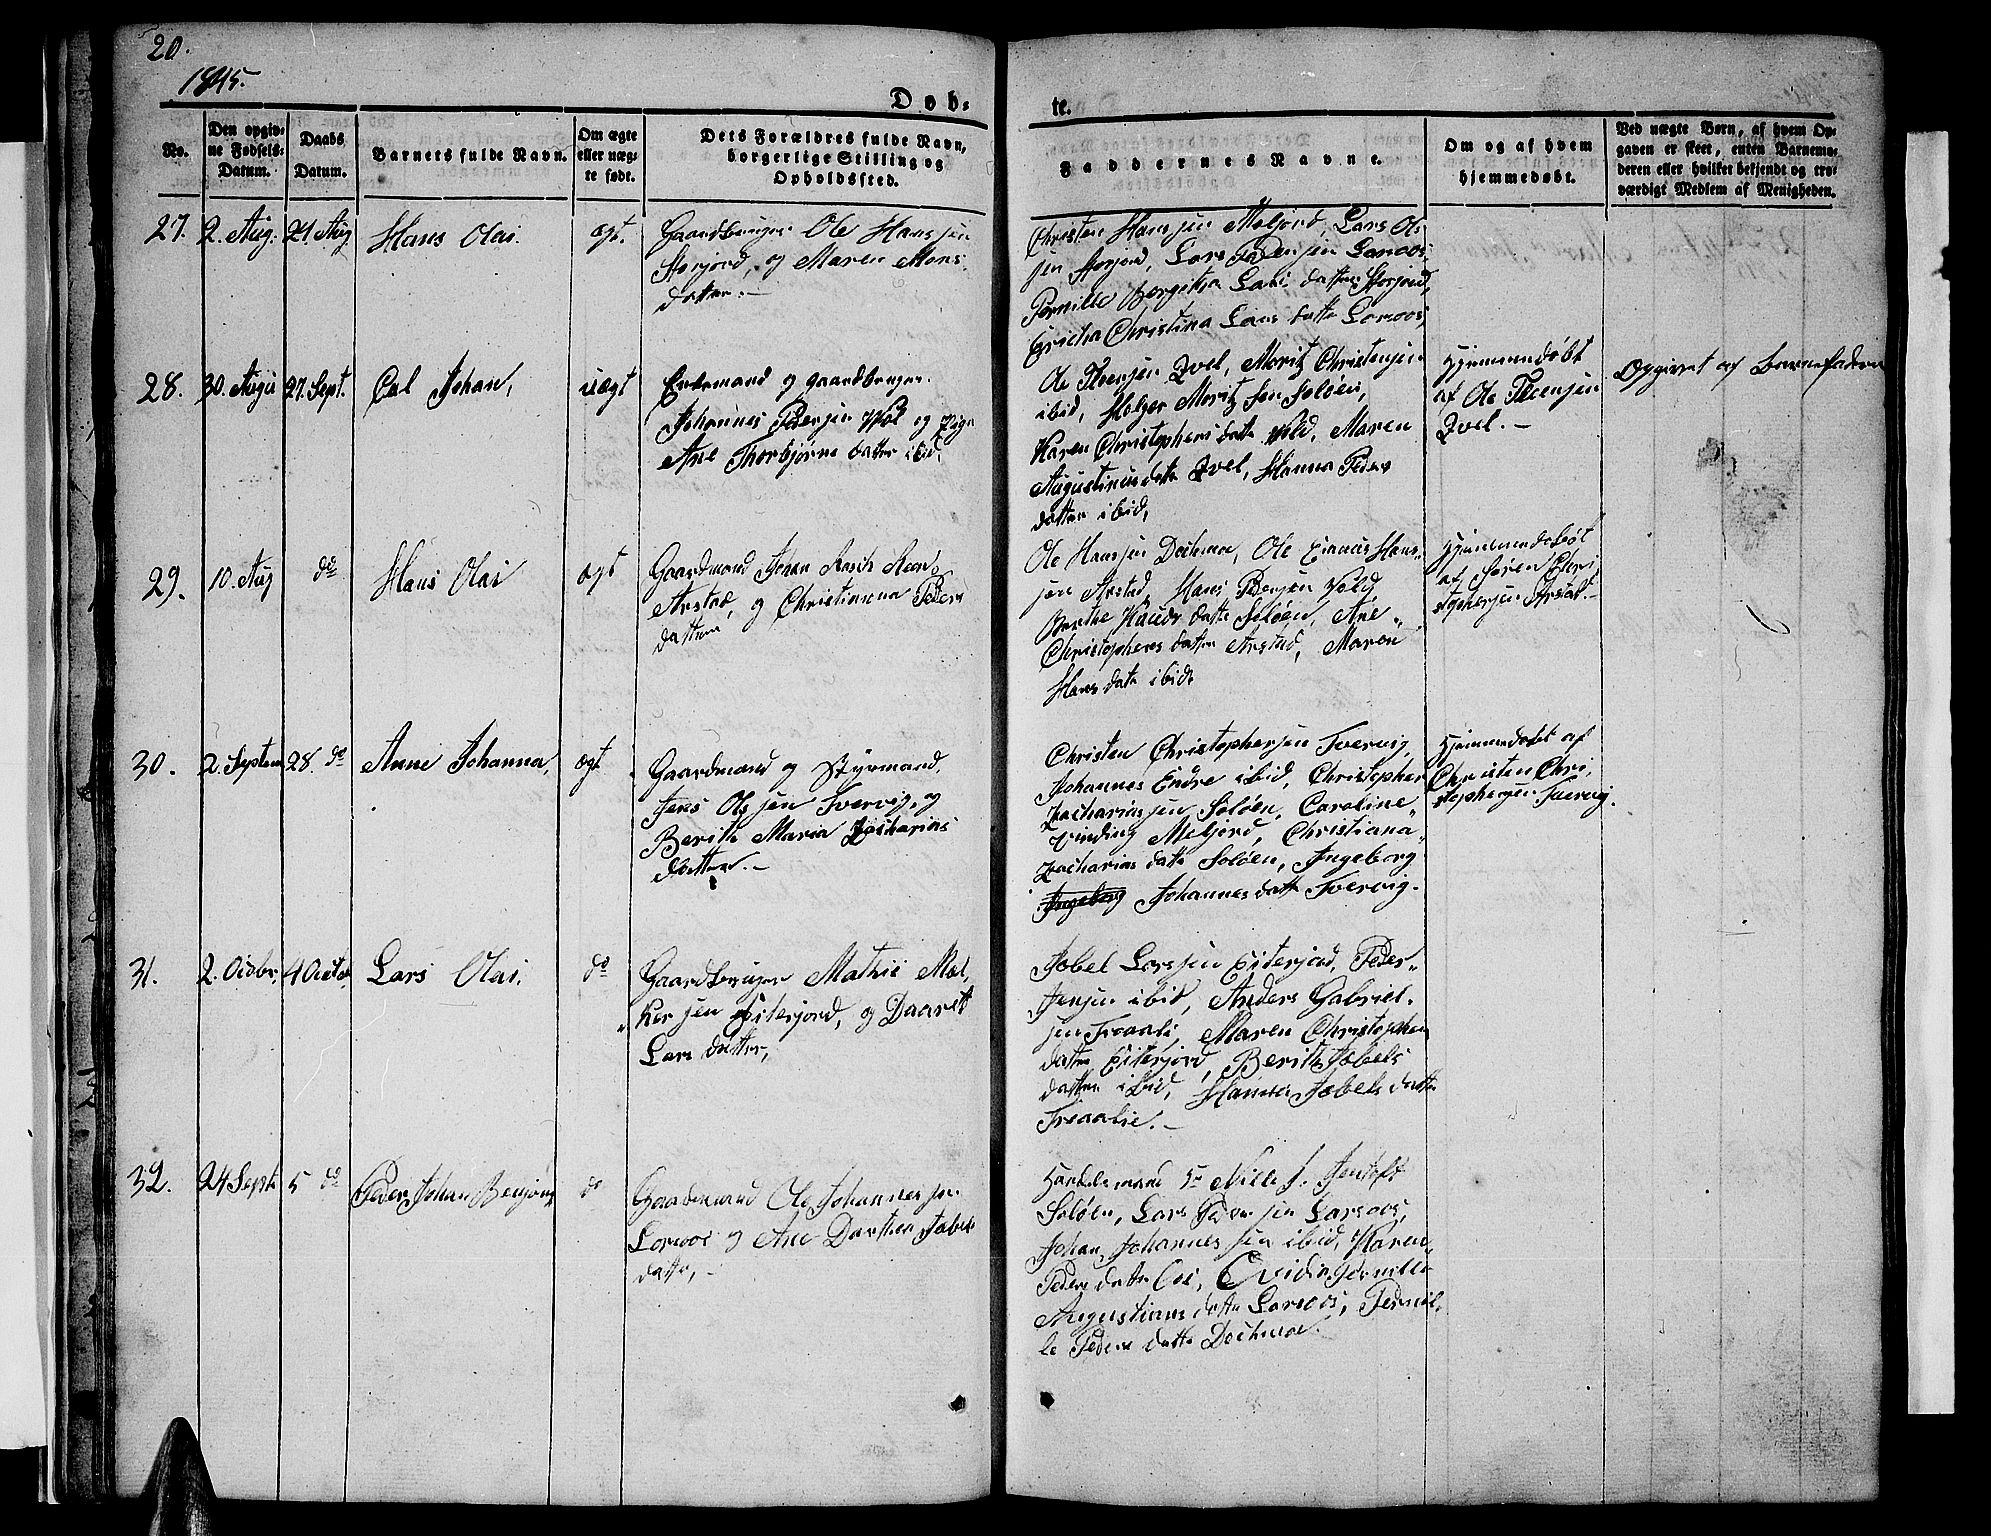 20.
1845.
Døb-
te.
No.
Den opgiv-
ne Fødsels-
Datum.
Daabs
Datum.
Barnets fulde Navn.
Om ægte
eller uæg-
te født.
Dets Forældres fulde Navn,
borgerlige Stilling og
Opholdssted.
Faddernes Navne.
Om og af hvem
hjemmedøbt.
Ved uægte Børn, af hvem Op-
gaven er skeet, enten Barnemo-
deren eller hvilket bekjendt og tro-
værdigt Medlem af Menigheden.
27.
2. Aug.
24 Aug
Hans Olai.
ægt.
Gaardbruger Ole Hansjen
Storjord, og Maren Mons
datter.-
Christen Hansjen Meljord, Lars Ols
jen Storjord, Lars Pedersjen Laroos,
Pernille Bergitha Lars datter Storjord,
Christina Lars datte
28.
30. Augu
27. Sept.
Carl Johan,
uægt
Enkemand og gaardbruger
Johannes Pedersjen og Pige
Ane Thorbjørns datter ibid,
Ole Zvel, Moritz Christensjen
ibid, Holger Moritz Sen Soløen,
Karen Christophers datte Maren
datte Zvel, Hanna Peders
datter ibid,
Hjemmendøbt
af Ole
Zvel.-
Opgivet af Barnefaderen
29.
10. Aug
do
Hans Olai
ægt
Gaardmand Johan
Arstad, og Christianna Peders
datter
Ole Hansjen Ole Hans-
jen Arstad, Hans Pedersjen
datte Soløen, Ane
Christophers datter Arstad, Maren
Hans datte ibid
Hjemmendøbt
af Søren Chri
stophersjen Arstad.-
30.
2. Septem
28. do
Anne Johanna,
ægt
Gaardmand og Styrmand,
Jens Olsjen Tvervig, og
Berith Maria Zacharias
datter.-
Christen Christophersjen Tvervig,
Johannes Endre ibid, Christopher
Zachariasjen Soløen, Caroline
Vinding Meljord, Christiana
Zacharias datte Soløen, Ingeborg
Ingeborg Johannes datte Tvervig.
Hjemmendøbt af
Christen Chri
stophersjen Tvervig.
31.
2. Octbr.
4 Octob.
Lars Olai.
do
Gaardbruger Mathis Mel,
ker jen Eiterjord, og Daaret
Lars datter,
Jobel Larsjen Eiterjord, Peder
Jensjen ibid, Anders Gabriel-
jen Maren Christopher
datter Eiterjord, Berith Jobels
datter ibid, Hanna Jobels datte
32.
24 Septb
5 do
Peder Johan
do
Gaardmand Ole Johannesjen
og Ane Dorthea Jobels
datter,-
Handelsmand Sr Nills J. Jentoft
Soløen, Lars Pedersjen Larsoos,
Johan Johannesjen ibid, Karen
Peders datte
Augustinus datte Pernil-
le Peders datte